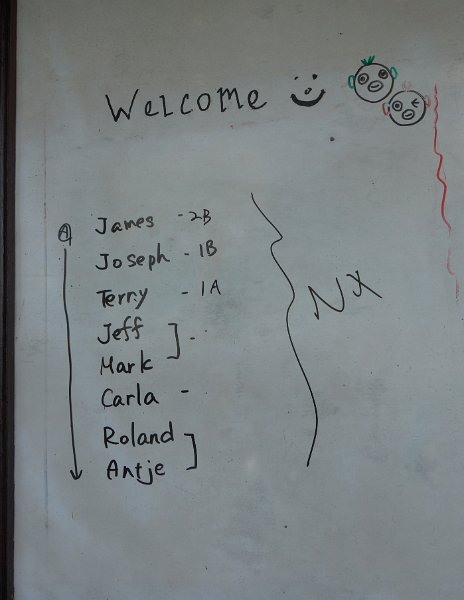 Welcome
A James - 2B
Joseph - 1B
Terry - 1A
Jeff -
Mark
Carla -
Roland
Antje
NX